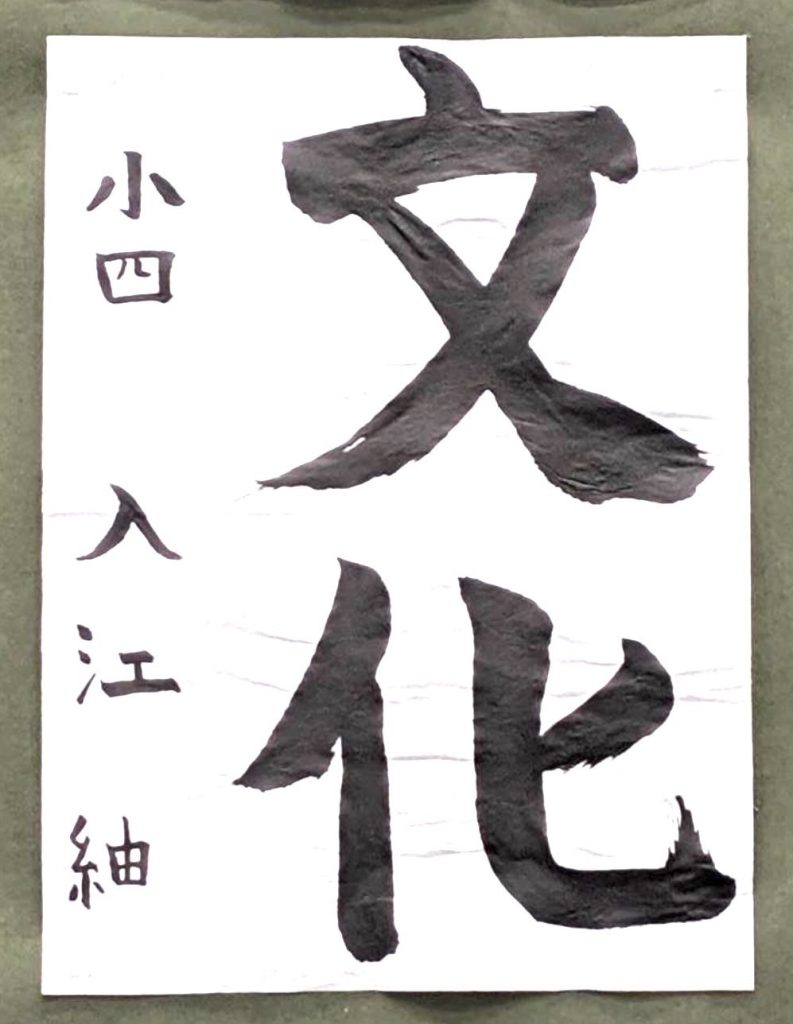 文化
小四 入江 紬